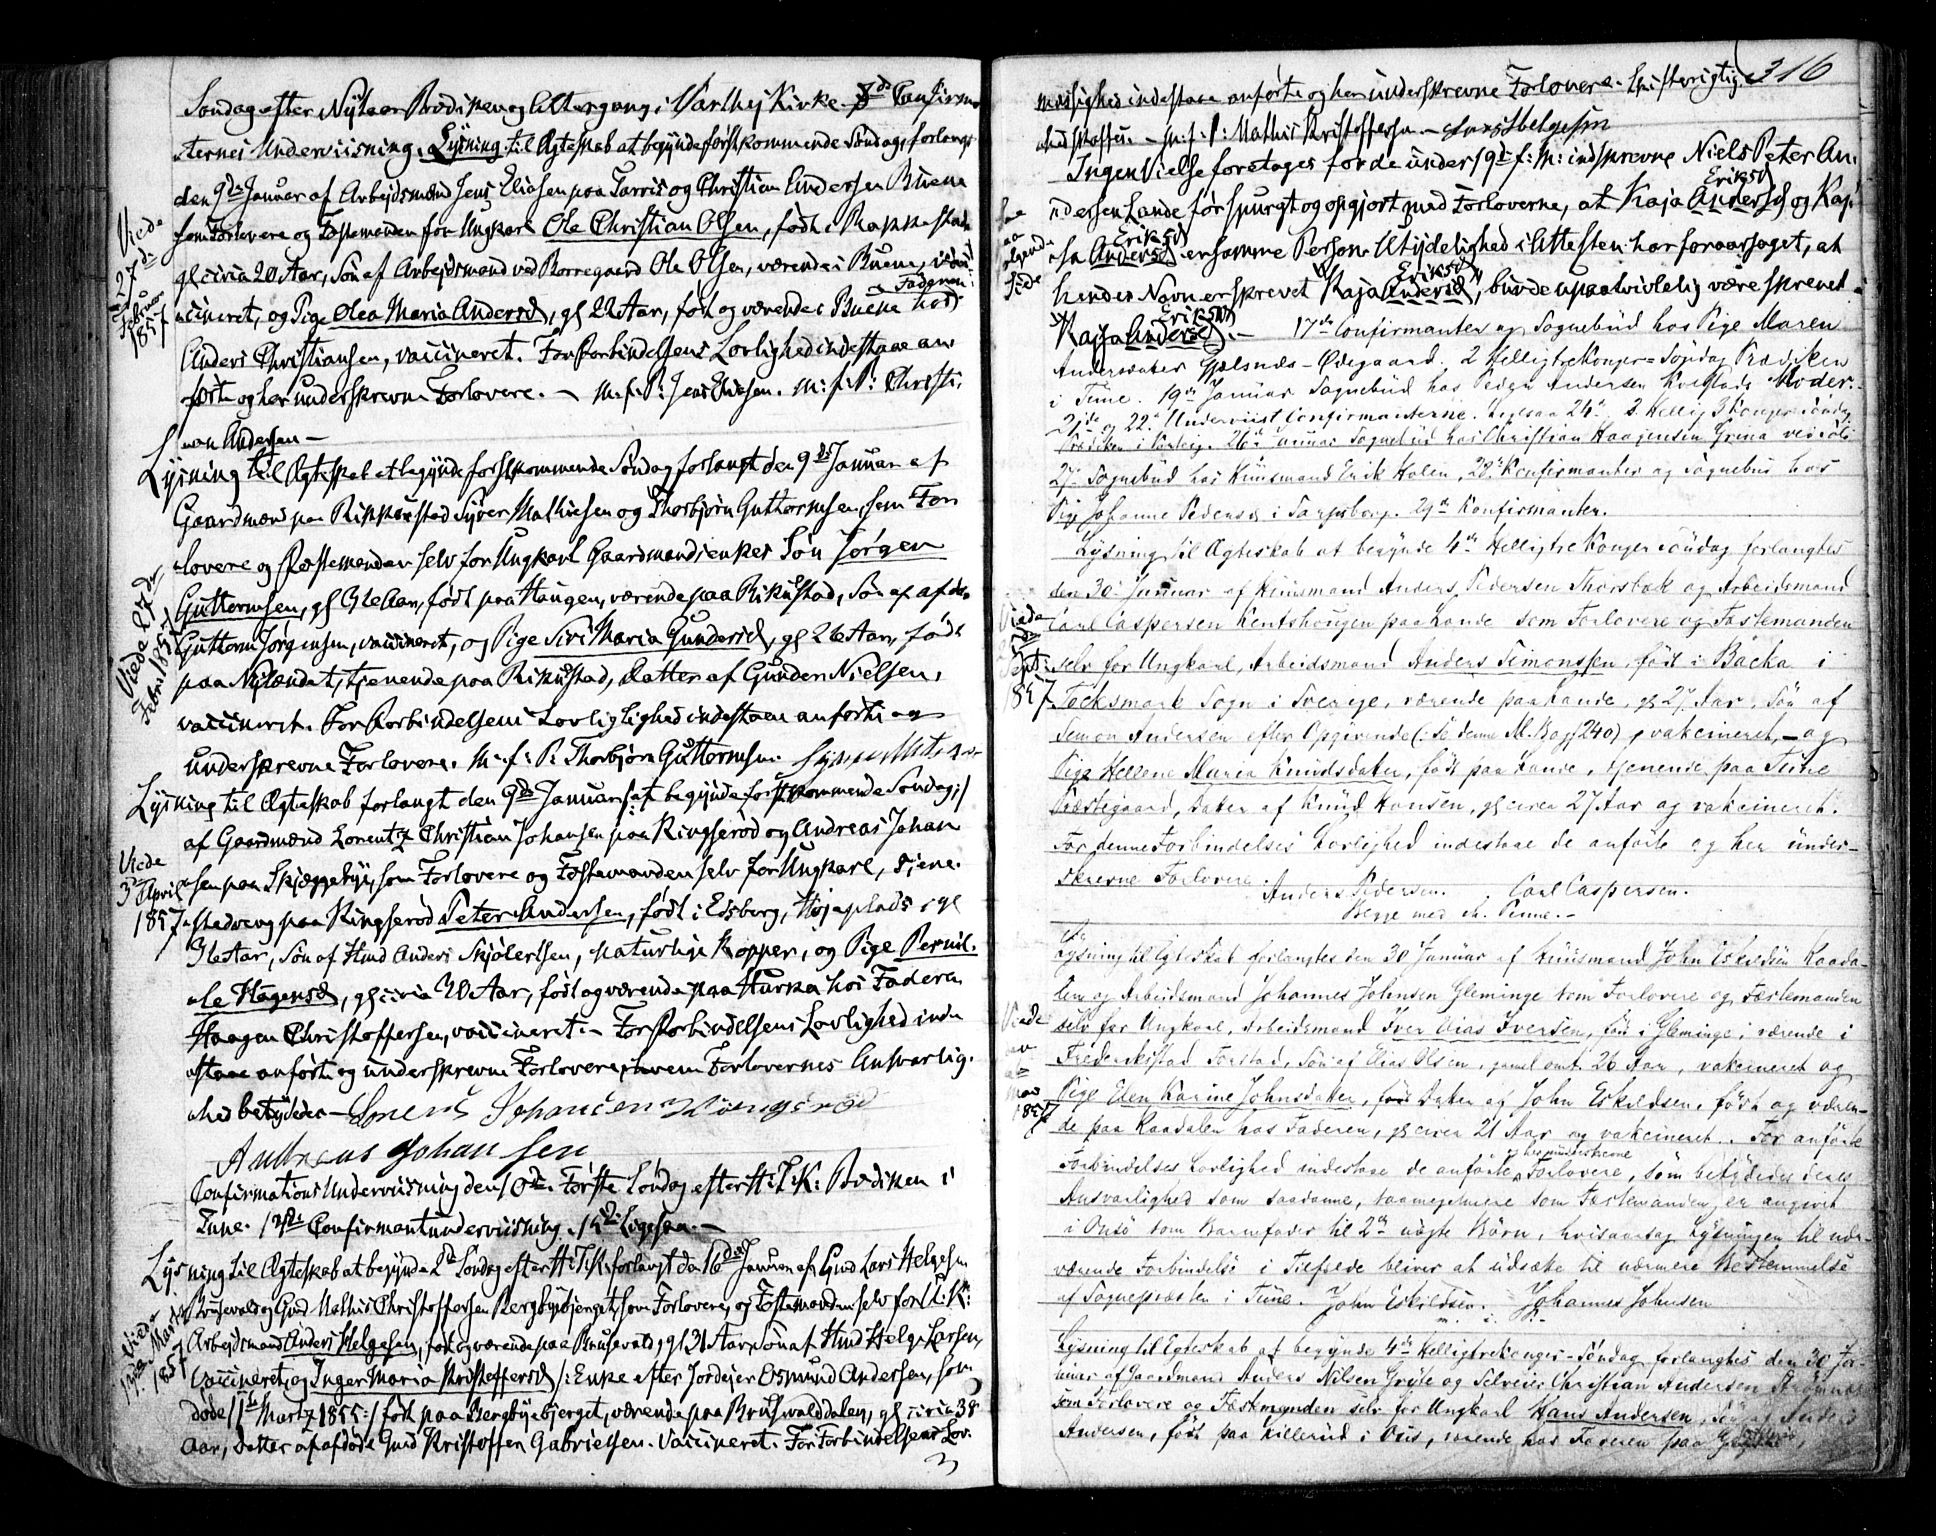 Søndag efter Nytaar Prædiken og Altergang i Varteig Kirke. 8de Confirman-
ternes Underviisning. Lysning til Ægteskab at begynde førstkommende Søndag, forlangt
den 9de Januar af Arbejdsmænd Jens Eliasen paa Torris og Christian Andersen Buene
som Forlovere og Fæstemanden for Ungkarl Ole Christian Olsen, født i Rakkestad
gl circa 20 Aar, Søn af Arbejdsmand ved Borregaard Ole Olsen, værende i Buene,
Viede
27de
Februar
1857
cineret, og Pige Olea Maria Andersd, gl 22 Aar, født og værende i Buene hos
Faderen
Anders Christiansen, vaccineret. For Forbindelsens Lovlighed indestaae an-
førte og her underskrevne Forlovere. – M. f. P: Jens Eliesen. M: f. P: Christi-
nan Andersen –
Lysning til Ægteskab at begynde førstkommende Søndag forlangt den 9de Januar af
Gaardmænd paa Rikkestad Syver Mathiesen og Thorbjørn Guttormsen, som For-
lovere og Fæstemanden selv for Ungkarl Gaardmandsenkes Søn Jørgen
Guttormsen, gl Aar, født paa Haugen, værende paa Rikustad, Søn af afdø.
Guttorm Jørgensen, vaccineret, og Pige Siri Maria Gundersd, gl 26 Aar, født
Viede 27de
Febr 1857
paa Nylændet, tjenende paa Rikustad, Datter af Gunder Nielsen,
vaccineret. For Forbindelsens Lovliglighed indestaae anførte og
underskrevne Forlovere. M: f: P. Thorbjørn Guttormsen.
Lysning til Ægteskab forlangt den 9de Januar /: at begynde førstkommende Søndag :/
af Gaardmænd Lorentz Christian Johansen paa Ringserød og Andreas Johan-
Viede
3de April
1857
sen paa Skjæggebye, som Forlovere og Fæstemanden selv for Ungkarl, Tjene-
stedreng paa Ringserød Peter Andersen, født i Edsberg, Højaplads, gl
Aar, Søn af Hmd Anders Skjølertsen, naturlige Kopper, og Pige Pernil-
le Hagensd, gl circa 20 Aar, født og værende paa Hurka hos Faderen
Haagen Christoffersen, vaccineret. – For Forbindelsens Lovlighed inde-
staae anførte og underskrevne Forlovere, hvem Forlovernes Ansvarlig-
hed betydedes – Lorens Johansen
Andreas Johansen
Confirmations Underviisning den 10de. Første Søndag efter H: 3 K: Prædiken i
Tune. 12de Confirmantunderviisning. 15de Ligesaa. –
Lysning til Ægteskab at begynde 2de Søndag efter H: 3 K: forlangt den 16de Januar af Gmd Lars Helgesen
Brusevald og Gmd Mathis Christoffersen Bergbyebjerget, som Forlovere og Fæstemanden selv for U: K:
Arbejdsmand Anders Helgesen, født og værende paa Brusevald, gl 31 Aar, Søn af Hmd Helge Larsen,
Viede
Marts
1857
vaccineret, og Inger Maria Kristoffersd /: Enke efter Jordejer Osmund Andersen, som
døde 11te Martz 1855 :/ født paa Bergbyebjerget, værende paa Bruswalddalen, gl circa 38
Aar, Datter af afdøde Gmd Kristoffer Gabrielsen. Vaccineret. For Forbindelsens Lov-
316
mæssighed indestaae anførte og her underskrevne Forlovere.
M: f. P: Mathis Kristoffersen – Lars Helgesen
Ingen Vielse foretages for de under 19de f: M: indskrevne Niels Peter An-
dersen Lande før spurgt og opgjort med Forloverne, at Kaja Andersd og Kaj-
Eriksd
sa Andersd er samme Person. Utydelighed i Attesten har foraarsaget, at
Eriksd
hendes Navn er skrevet "Kaja Andersd", burde upaatvivlelig være skrevet
Eriksd
"Kajsa Andersd". – 17de Confirmanter og Sognebud hos Pige Maren
Eriksd
Side
Andersdatter Gjelsnæs-Ødegaard. 2 Helligtrekonger-Søndag Prædiken
i Tune. 19de Januar Sognebud hos Peder Andersen Moder.
21de og 22de Underviist Confirmanterne. Ligesaa 24de. 3. Hellig 3 Konger Søndag
Prædiken i Varteig. 26de Januar Sognebud hos Christian Haagensen Grina
27de Sognebud hos Huusmand Erik Holen. 28de Konfirmanter og Sognebud hos
Pige Johanne Pedersd i Sarpsborg. 29de Konfirmanter.
Lysning til Ægteskab at begynde 4de Helligtrekonger Søndag forlangtes
den 30te Januar af Huusmand Anders Pedersen Thorsbæk og Arbeidsmand
Carl Caspersen paa Lande som Forlovere og Fæstemanden
Viede
Sept:
1857
selv for Ungkarl, Arbeidsmand Anders Simonssen, født i Backa i
Töcksmark Sogn i Sverige, værende paa Lande, gl 27 Aar, Søn af
Simon Andersen efter Opgivende (: Se denne M. Bog 240), vakcineret, – og
Pige Hellene Maria Knudsdatter, født paa Lande, tjenende paa Tune
Præstegaard, Datter af Knud Hansen, gl circa 27 Aar og vakcineret.
For denne Forbindelses Lovlighed indestaae de anførte og her under-
skrevne Forlovere.
Anders Pedersen. Carl Caspersen.
Begge med ih. Penne. –
Lysning til Ægteskab forlangtes den 30 Januar af Huusmand John Eskildsen Raada-
len og Arbeidsmand Johannes Johnsen Gleminge som Forlovere og Fæstemanden
Viede
1857
selv for Ungkarl, Arbeidsmand Iver Elias Iversen, født i Gleminge, værende i
Frederikstad Forstad, Søn af Elias Olsen, gamel omt. 26 Aar, vakcineret og
Pige Elen Karine Johnsdatter, født Datter af John Eskildsen, født og væren-
de paa Raadalen hos Faderen, gl circa 21 Aar og vakcineret. For anførte
Forbindelses Lovlighed indestaae de anførte Forlovere, som betydedes deres
og her underskrevne
Ansvarlighed som saadanne, som Fæstemanden er angivet
i Onsø som Barnefader til 2de uægte Børn, hvisaarsag Lysningen til nær-
værende Forbindelse i Tilfelde bliver at udsætte til nærmere Bestemmelse
af Sognepræsten i Tune. John Eskildsen. Johannes Johnsen
Lysning til Ægteskab at begynde 4de Helligtrekonger-Søndag forlangtes den 30 Ja-
nuar af Gaardmand Anders Nilsen Grøte og Selveier Christian Andersen
som Forlovere og Fæstmanden selv for Ungkarl Hans Andersen, Søn af Anders
Andersen, født paa Killerud i Viis, værende hos Faderen paa